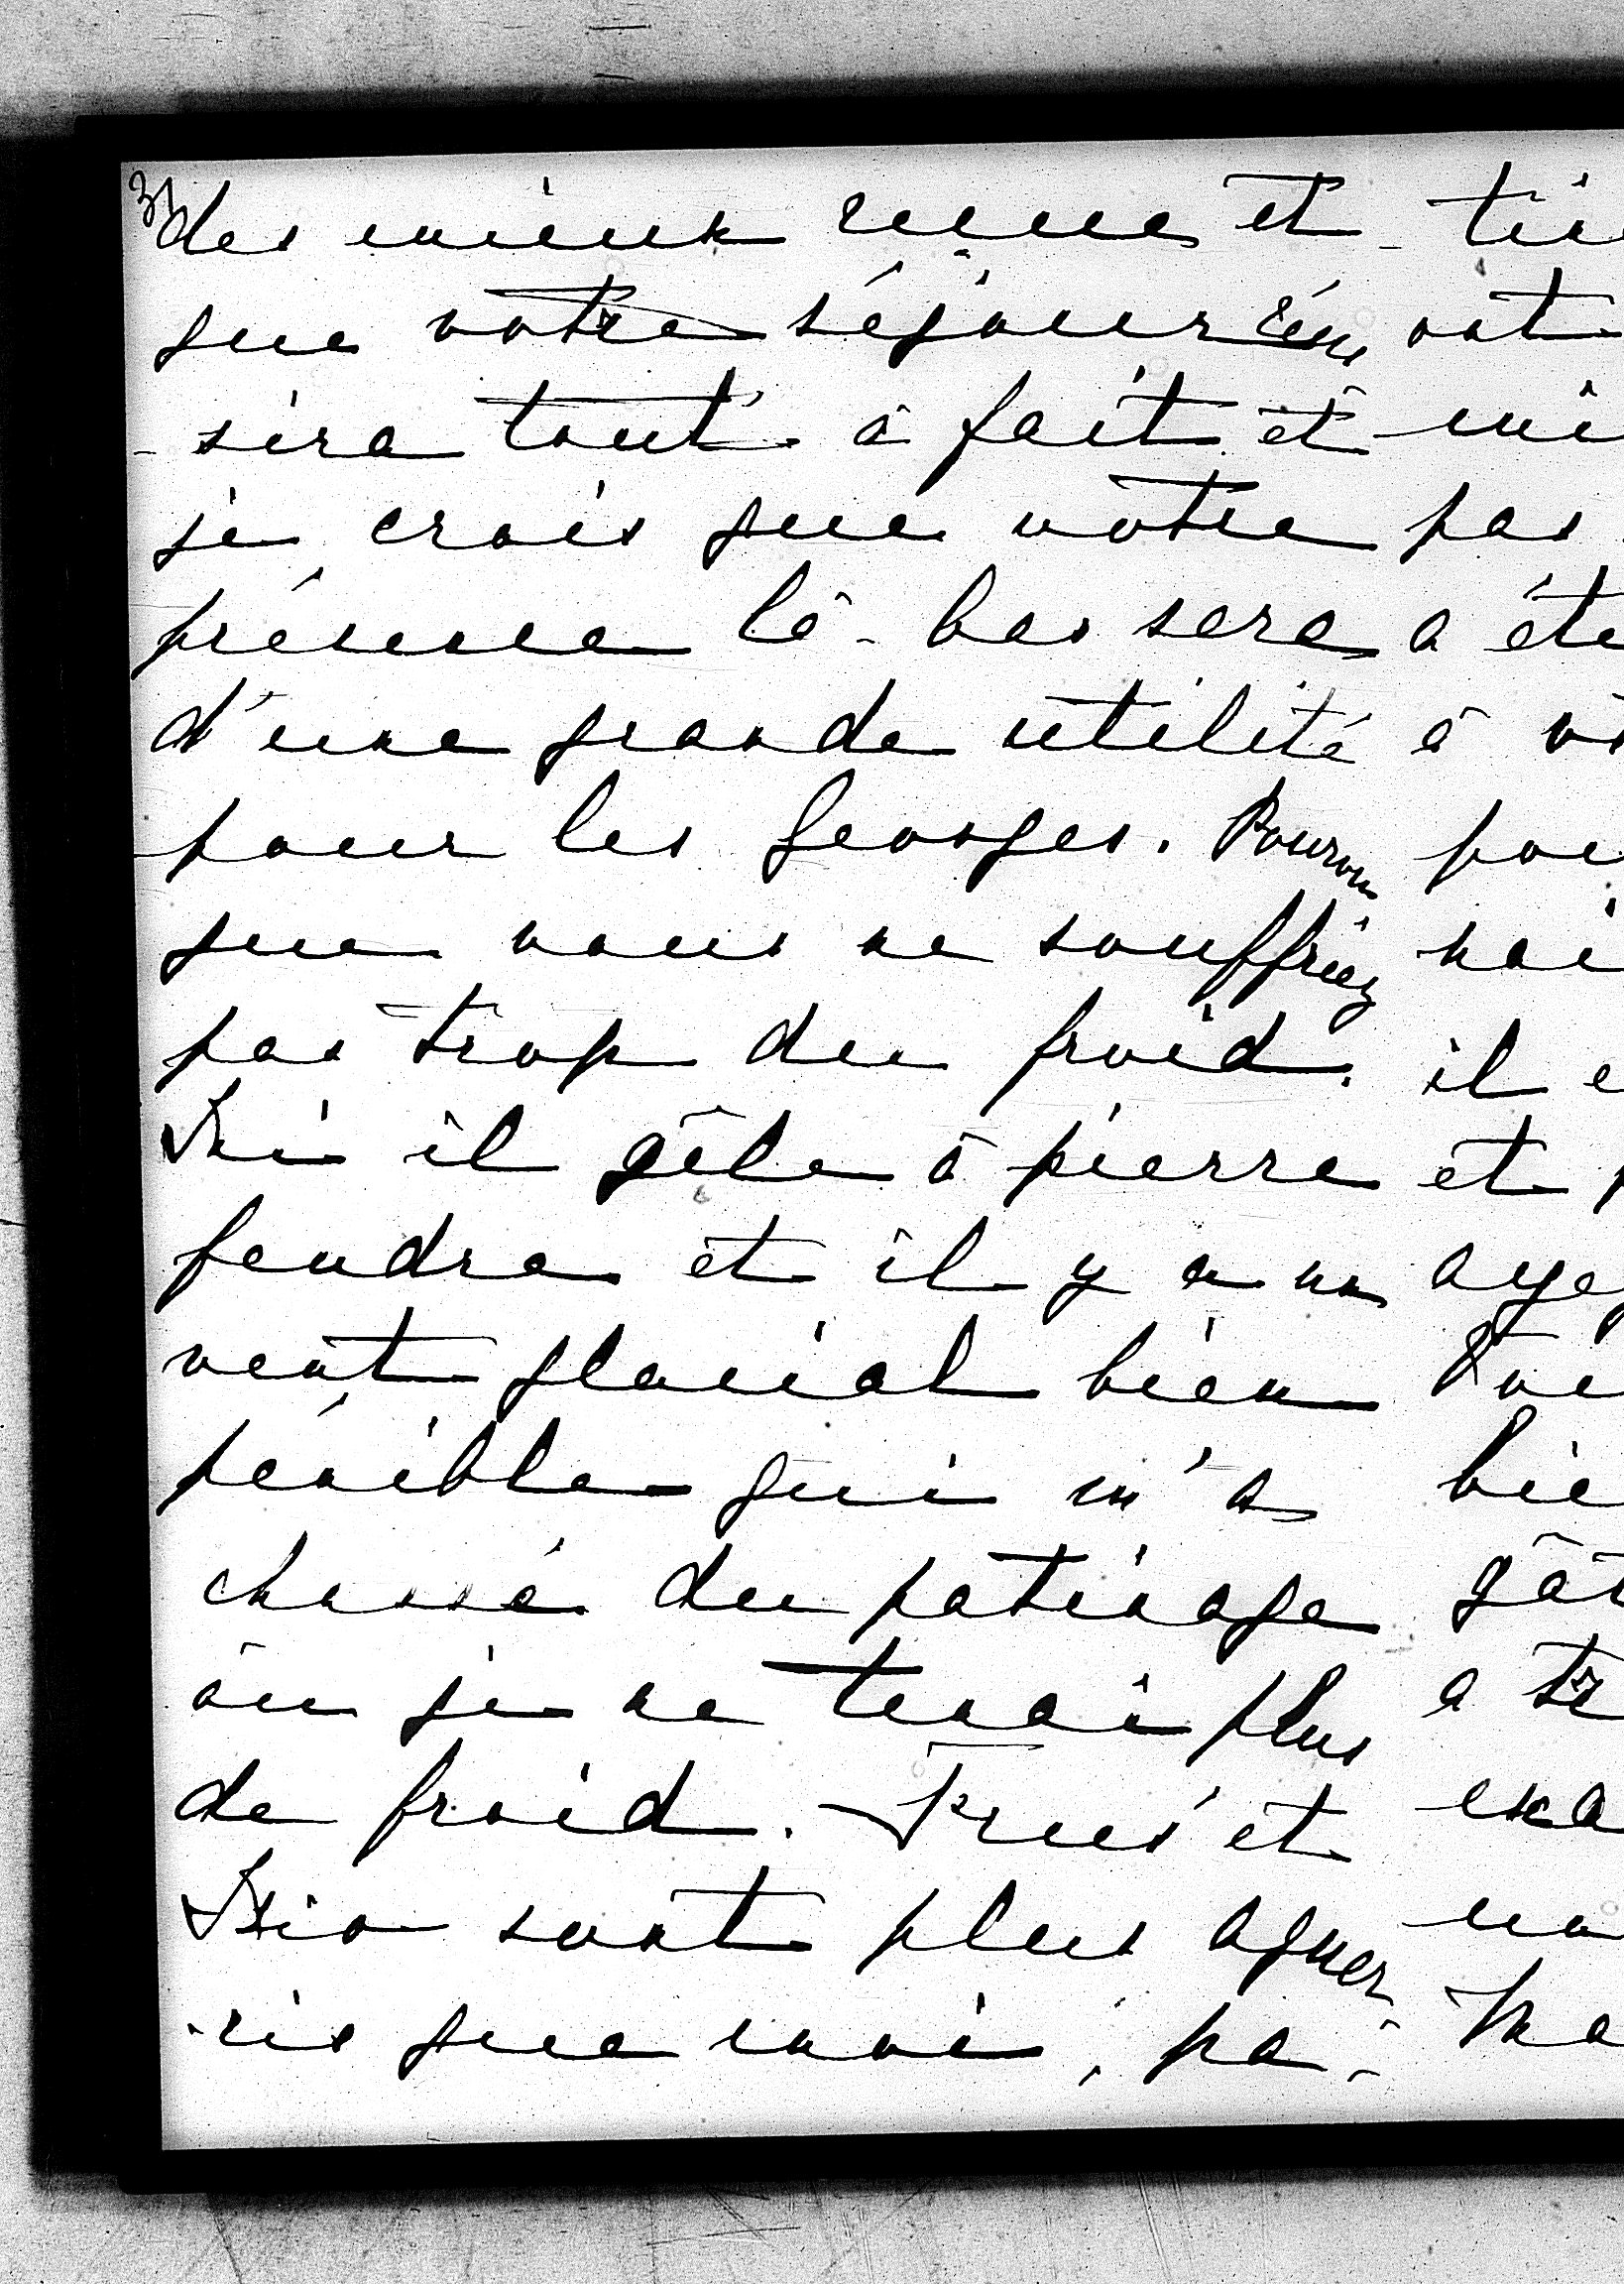 3)
des mieux reçue et
que votre séjour réus
-sira tout à fait et
je crois que votre
présence là-bas sera
d'une grande utilité
pour les Georges. Pourvu
que vous ne souffriez
pas trop du froid.
Ici il gèle à pierre
fendre et il y a un
vent glacial bien
pénible qui m'a
chassé du patinage
où je ne tenai plus
de froid. et
sont plus aguer
-ris que moi, pa-
tié
ont
mi
pas
a éte
à vo
pou
noi
il e
et p
aye
bie
gât
a tr
exa